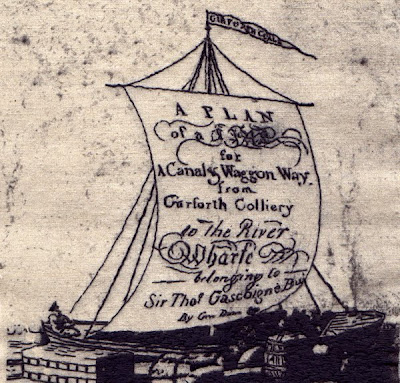 A PLAN
of a
for
A Canal & Waggon Way
from
Garforth Colliery
to The River
Wharfe
belonging to
Sir Thos Gascoigne Bar
By Geo